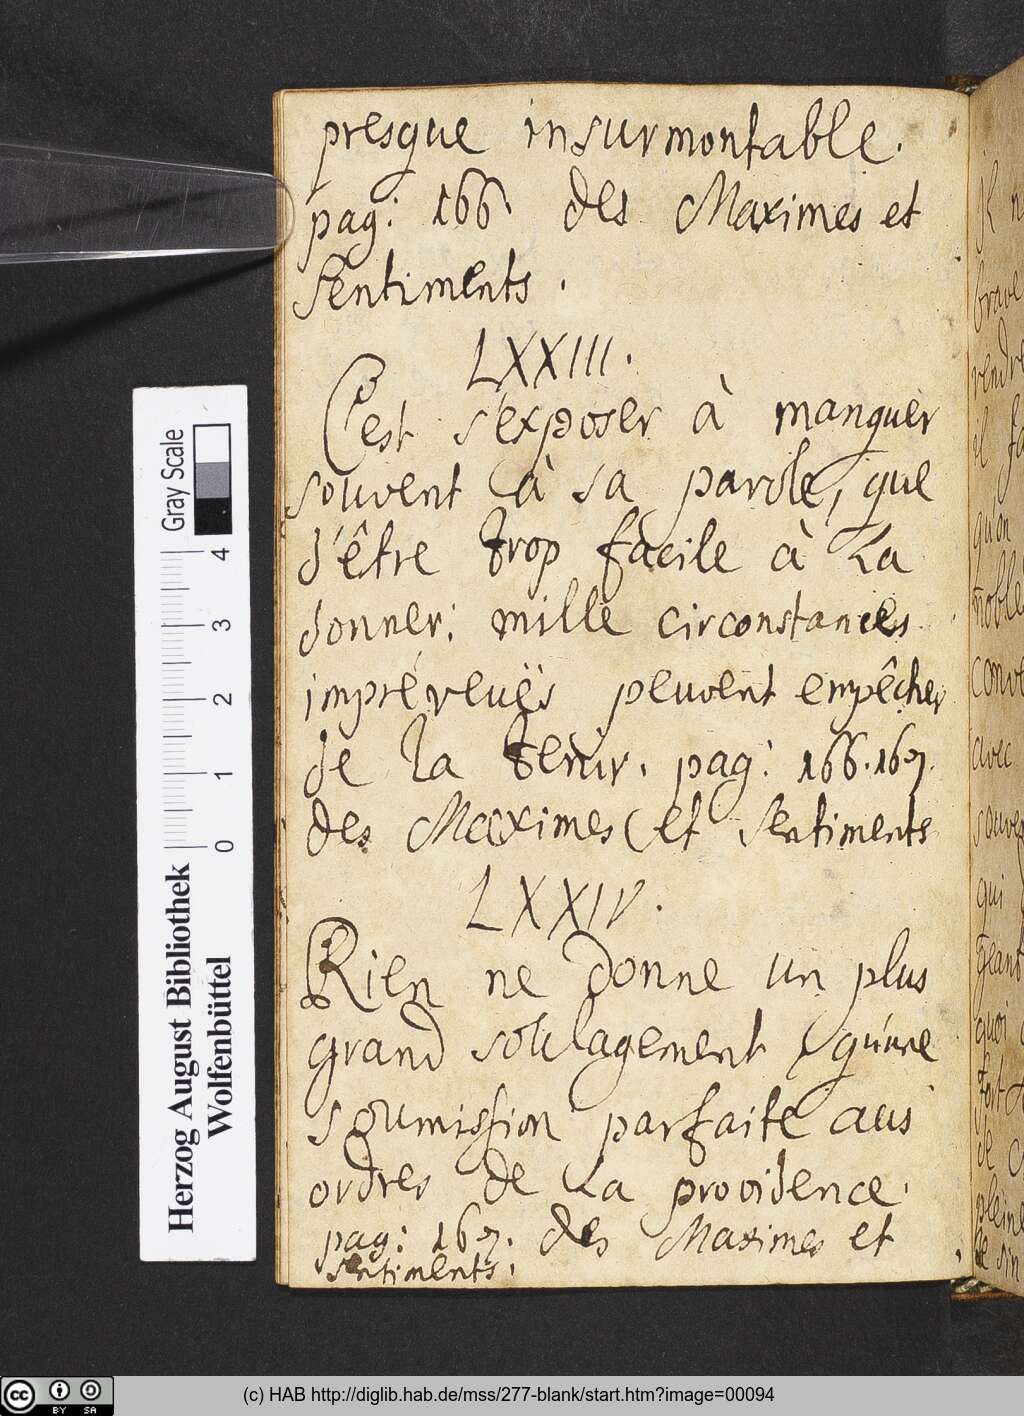 presque insurmontable.
pag: 166 des Maximes et
Sentiments.
LXXIII.
C'est s'exposer à manquer
souvent à sa parole, que
d'être trop facile à la
donner: mille circonstances
impréveuës peuvent empêcher
de la tenir. pag: 166.167.
des Maximes et Sentiments
LXXIV.
Rien ne donne un plus
grand soulagement qu'une
soumission parfaite aus
ordres de la providence.
pag: 167. des Maximes et
sentiments.
Gray Scale
4
3
2
1
0
Herzog August Bibliothek
Wolfenbüttel
cc BY SA
(c) HAB http://diglib.hab.de/mss/277-blank/start.htm?image=00094